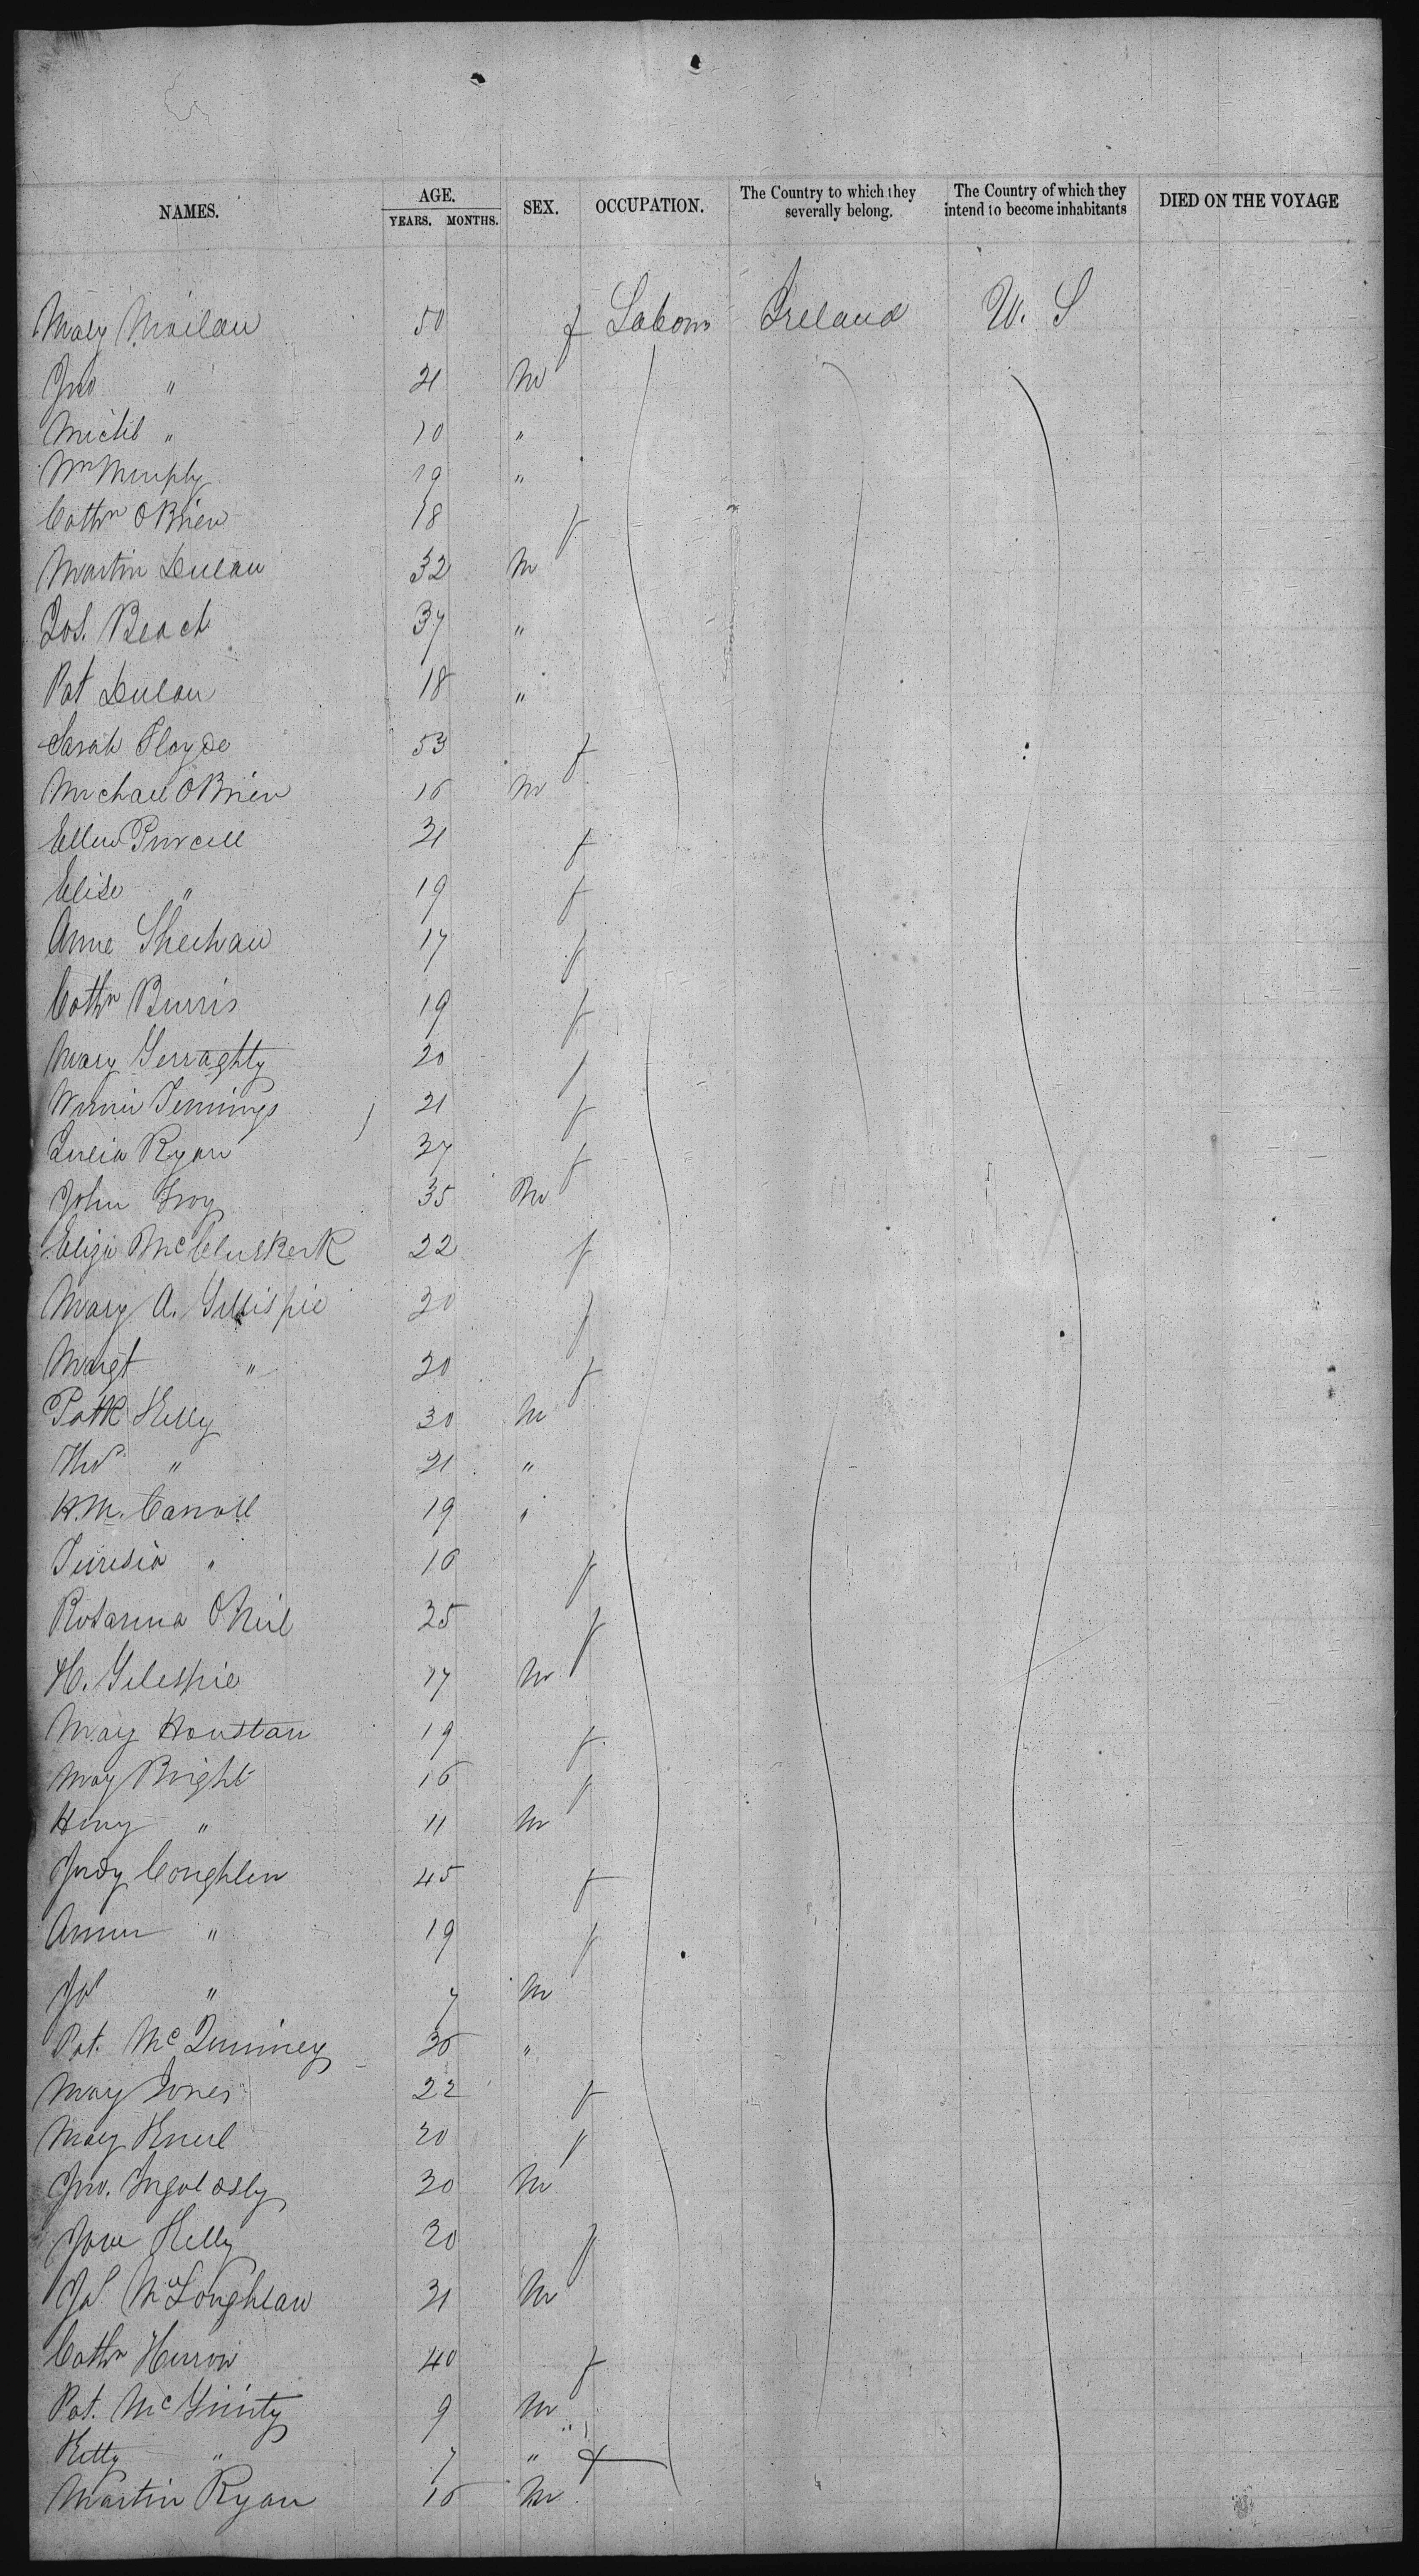 NAMES. AGE. YEARS. MONTHS. SEX. OCCUPATION. The Country to which they severally belong. The Country of which they intend to become inhabitants DIED ON THE VOYAGE
Mary 50 f Labors Ireland U. S
Jno " 21 M
Michl " 10 "
Wm Murphy 19 "
Cathn O Brien 18 f
Martin 32 M
Jos. Beach 37 "
Pat 18 "
Sarah Floyde 53 f
Michael O Brien 16 M
Ellen Purcell 21 f
Elise " 19 f
Anne Sheehan 17 f
Cathn Burris 19 f
Mary Gerraghty 20 f
Winnie Jennings 21 f
Ryan 37 f
John Troy 35 M
Eliza McCluskerk 22 f
Mary A. Gillispie 20 f
Margt " 20 f
Patk Kelly 30 M
Thos " 21 "
H. M. Carroll 19 "
" 16 f
Rosanna O Neil 25 f
H. Gilespie 17 M
May Houstan 19 f
May Bright 16 f
Henry " 11 M
Judy Coughlen 45 f
Annie " 19 f
Js " 7 M
Pat. McQuinney 30 "
May Jones 22 f
May 20 f
Jno. Ingoldsby 30 M
Jane Kelly 20 f
Js. McLoughlan 21 M
Cathn Herron 40 f
Pat. McGinty 9 M
Kitty " 7 " f
Martin Ryan 16 M